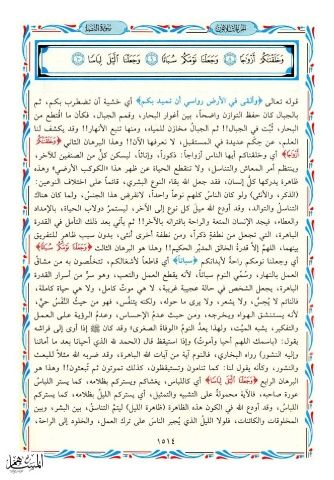 سورة النبإ
الجزء الثلاثون
وَخَلَقْنَٰكُمْ أَزْوَٰجًا ٨ وَجَعَلْنَا نَوْمَكُمْ سُبَاتًا ٩ وَجَعَلْنَا ٱلَّيْلَ لِبَاسًا ١٠
قوله تعالى ﴿وألقى في الأرض رواسي أن تميد بكم﴾ أي خشية أن تضطرب بكم، ثم
بالجبال كان حفظ التوازن واضحاً، بين أغوار البحار، وقمم الجبال، فكأن ما اقتطع من
البحار، ثُبِّت في الجبال!! ثم الجبال مخازن للمياه، ومنها تنبع الأنهار!! وقد يكشف لنا
العلم، عن حِكَمٍ عديدة في المستقبل، لا نعرفها الآن!! وهذا البرهان الثاني ﴿وخلقنكم
أزوجا﴾ أي وخلقناكم أيها الناس أزواجاً: ذكوراً، وإناثاً، ليسكن كلٌّ من الصنفين للآخر،
وينتظم أمر المعاش والتناسل، ولا تنقطع الحياة عن ظهر هذا «الكوكب الأرضي» وهذه
ظاهرة يدركها كلُّ إنسان، فقد جعل الله بقاء النوع البشري، قائماً على اختلاف النوعين:
(الذكر، والأنثى) ولو كان الناس كلهم نوعاً واحداً، لانقرض هذا الجنس، ولما كان هناك
التناسل والتوالد، وقد أودع الله ميل كل نوع إلى الآخر، ليستمر دولاب الحياة، بالإمداد
والعطاء، فيجد الإنسان المتعة والراحة باقترانه بالآخر!! ثم يأتي بعد ذلك التأمل في القدرة
الباهرة، التي تجعل من نطفةٍ ذكراً، ومن نطفة أخرى أنثى، بدون سبب ظاهر للتفريق
بينهما، اللهم إلاَّ قدرةُ الخالق المدبِّر الحكيم!! وهذا هو البرهان الثالث ﴿وجعلنا نومكم سباتا﴾
أي وجعلنا نومكم راحةً لأبدانكم ﴿سباتا﴾ أي قاطعاً لأشغالكم، تتخلَّصون به من مشاقّ
العمل بالنهار، وسُمِّي النوم سباتاً، لأنه يقطع العمل والتعب، وهو سرٌّ من أسرار القدرة
الباهرة، يجعل الشخص في حالة عجيبة غريبة، لا هي موتٌ كامل، ولا هي حياة كاملة،
فالنائم لا يُحِسُّ، ولا يشعر، ولا يرى ما حوله، ولكنه يتنفَّس، فهو من حيثُ النَّفَس حيٌّ،
لأنه يستنشق الهواء ويخرجه، ومن حيث عدمُ الإحساس، وعدمُ الرؤية على العمل
والتفكير، يشبه الميِّت، ولهذا يعدُّ النومُ (الوفاة الصغرى) وقد كان ﷺ إذا أوى إلى فراشه
يقول: (باسمك اللهم أحيا وأموتُ) وإذا استيقظ قال (الحمد لله الذي أحيانا بعد ما أماتنا
وإليه النشور) رواه البخاري، فالنوم آية من آيات الله الباهرة، وقد ضربه الله مثلاً للبعث
والنشور، وكأنه يقول لنا: كما تنامون وتستيقظون، كذلك تموتون ثم تُبعثون!! وهذا هو
البرهان الرابع ﴿وجعلنا الَّيل لباسا﴾ أي كاللباس، يغشاكم ويستركم بظلامه، كما يستر اللباسُ
عورة صاحبه، فالآية محمولةٌ على التشبيه والتمثيل، أي يستركم الليلُ بظلامه، كما يستركم
اللباسُ، وقد أودع الله في الكون هذه الظاهرة (ظاهرة الليل) ليتمَّ التناسقُ، بين البشر، وبين
المخلوقات والكائنات، فلولا الليلُ الذي يُجبر الناس على ترك العمل، والخلود إلى الراحة،
١٥١٤